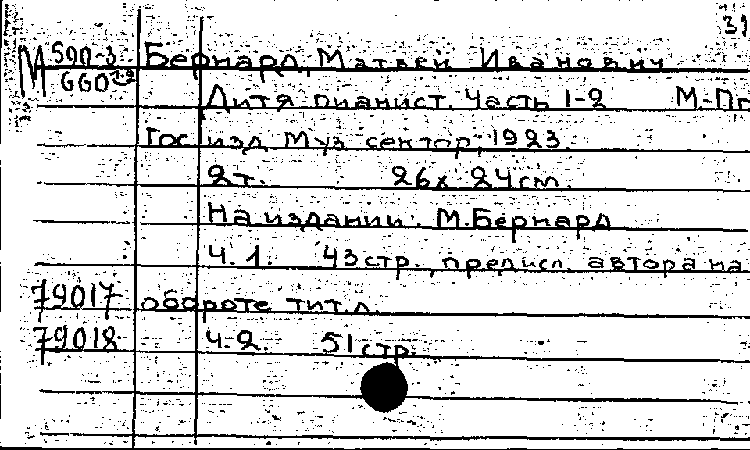 31
М 590-3 Бернард, Матвей Иванович
660 1-2 Дитя пианист. Часть 1-2 М-Пг
Гос изд Муз сектор, 1923.
2 т. 26 х 24 cm.
На издании: М. Бернард
Ч. 1. 43 стр., предисл. автора на
79017 обороте тит. л.
79018 Ч. 2. 51 стр.